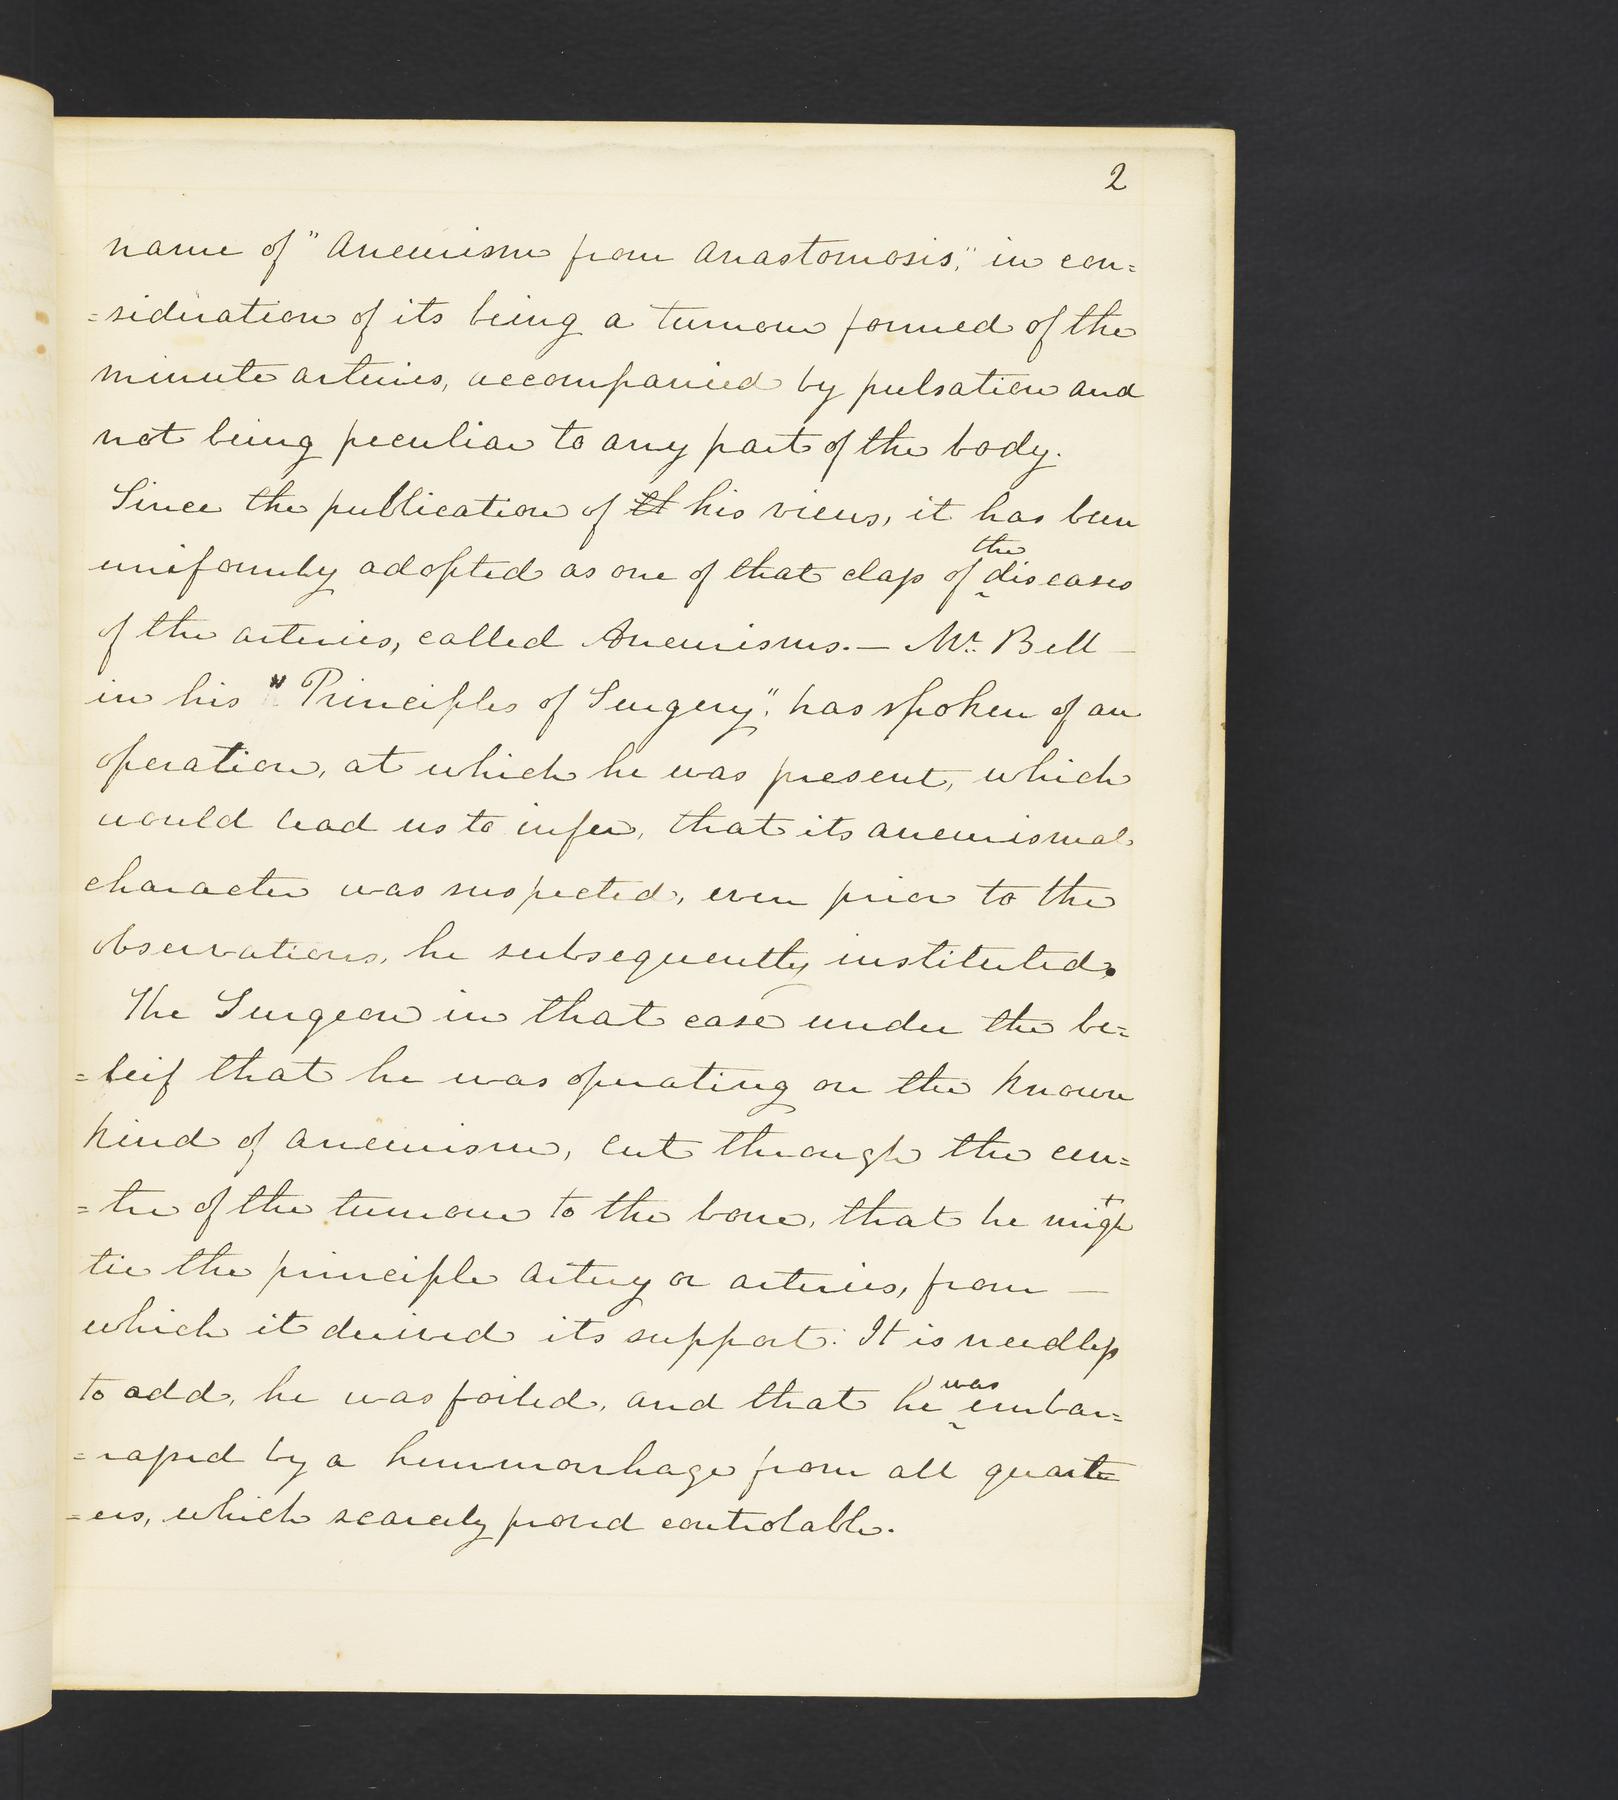 2
name of "Aneurism from Anastomosis," in con=
=sideration of its being a tumour formed of the
minute arteries, accompanied by pulsation and
not being peculiar to any part of the body.
Since the publication of th his views, it has been
uniformly adopted as one of that class of the diseases
of the arteries, called Aneurisms. — Mr. Bell —
in his "Principles of Surgery", has spoken of an
operation, at which he was present, which
would lead us to infer, that its aneurismal
character was suspected, even prior to the
observations, he subsequently instituted.
The Surgeon in that case under the be=
=leif that he was operating on the known
kind of aneurism, cut through the cen=
=tre of the tumour to the bone, that he might
tie the principle artery or arteries, from —
which it derived its support. It is needless
to add, he was foiled, and that he was embar=
=rassed by a hemmorhage from all quarte
=ers, which scarcely proved controlable.